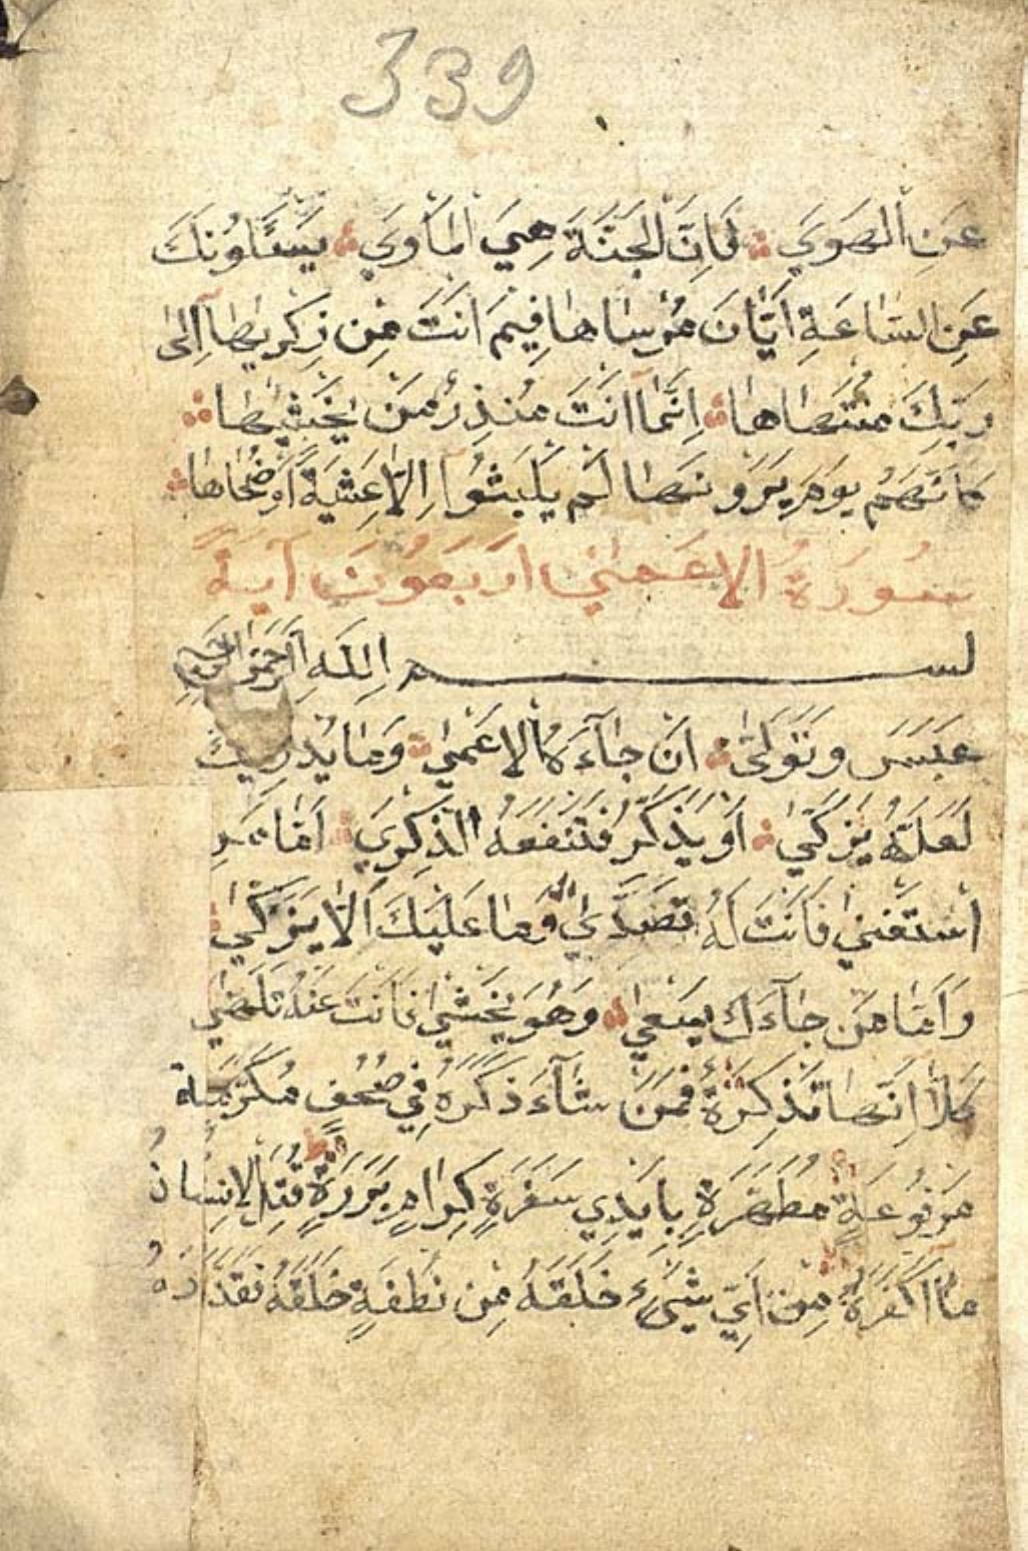 339
عَنِ الْهَوَي فَاِنَّ الْجَنَّةَ هِيَ الْمَأْوَي يَسْئَلُونَكَ
عَنِ السَّاعَةِ اَيَّانَ مُرْسَاهَا فِيمَ اَنْتَ مِنْ ذِكْرَيٰهَا اِلٰى
رَبِّكَ مُنْتَهَاهَا اِنَّمَا اَنْتَ مُنْذِرُ مَنْ يَخْشٰيهَا
كَاَنَّهُمْ يَوْمَ يَرَوْنَهَا لَمْ يَلْبَثُوا اِلَّا عَشِيَّةً اَوْ ضُحَاهَا
سُورَةُ الاعَمٰي اَرْبَعُونَ آيَةً
بسم اللهِ الرَّحْمٰنِ الرَّحِيمِ
عَبَسَ وَتَوَلَّى اَنْ جَآءَهُ الاَعْمٰي وَمَا يُدْرِيكَ
لَعَلَّهُ يَزَّكّٰي اَوْ يَذَّكَّرُ فَتَنْفَعَهُ الذِّكْرَي اَمَّا مَنِ
اسْتَغْنٰي فَاَنْتَ لَهُ تَصَدّٰي وَمَا عَلَيْكَ اَلَّا يَزَّكّٰي
وَاَمَّا مَنْ جَآءَكَ يَسْعٰي وَهُوَ يَخْشٰي فَاَنْتَ عَنْهُ تَلَهّٰي
كَلَّا اِنَّهَا تَذْكِرَةٌ فَمَنْ شَآءَ ذَكَرَهُ فِي صُحُفٍ مُكَرَّمَةٍ
مَرْفُوعَةٍ مُطَهَّرَةٍ بِاَيْدِي سَفَرَةٍ كِرَامٍ بَرَرَةٍ قُتِلَ الاِنْسَانُ
مَا اَكْفَرَهُ مِنْ اَيِّ شَيْءٍ خَلَقَهُ مِنْ نُطْفَةٍ خَلَقَهُ فَقَدَّرَهُ